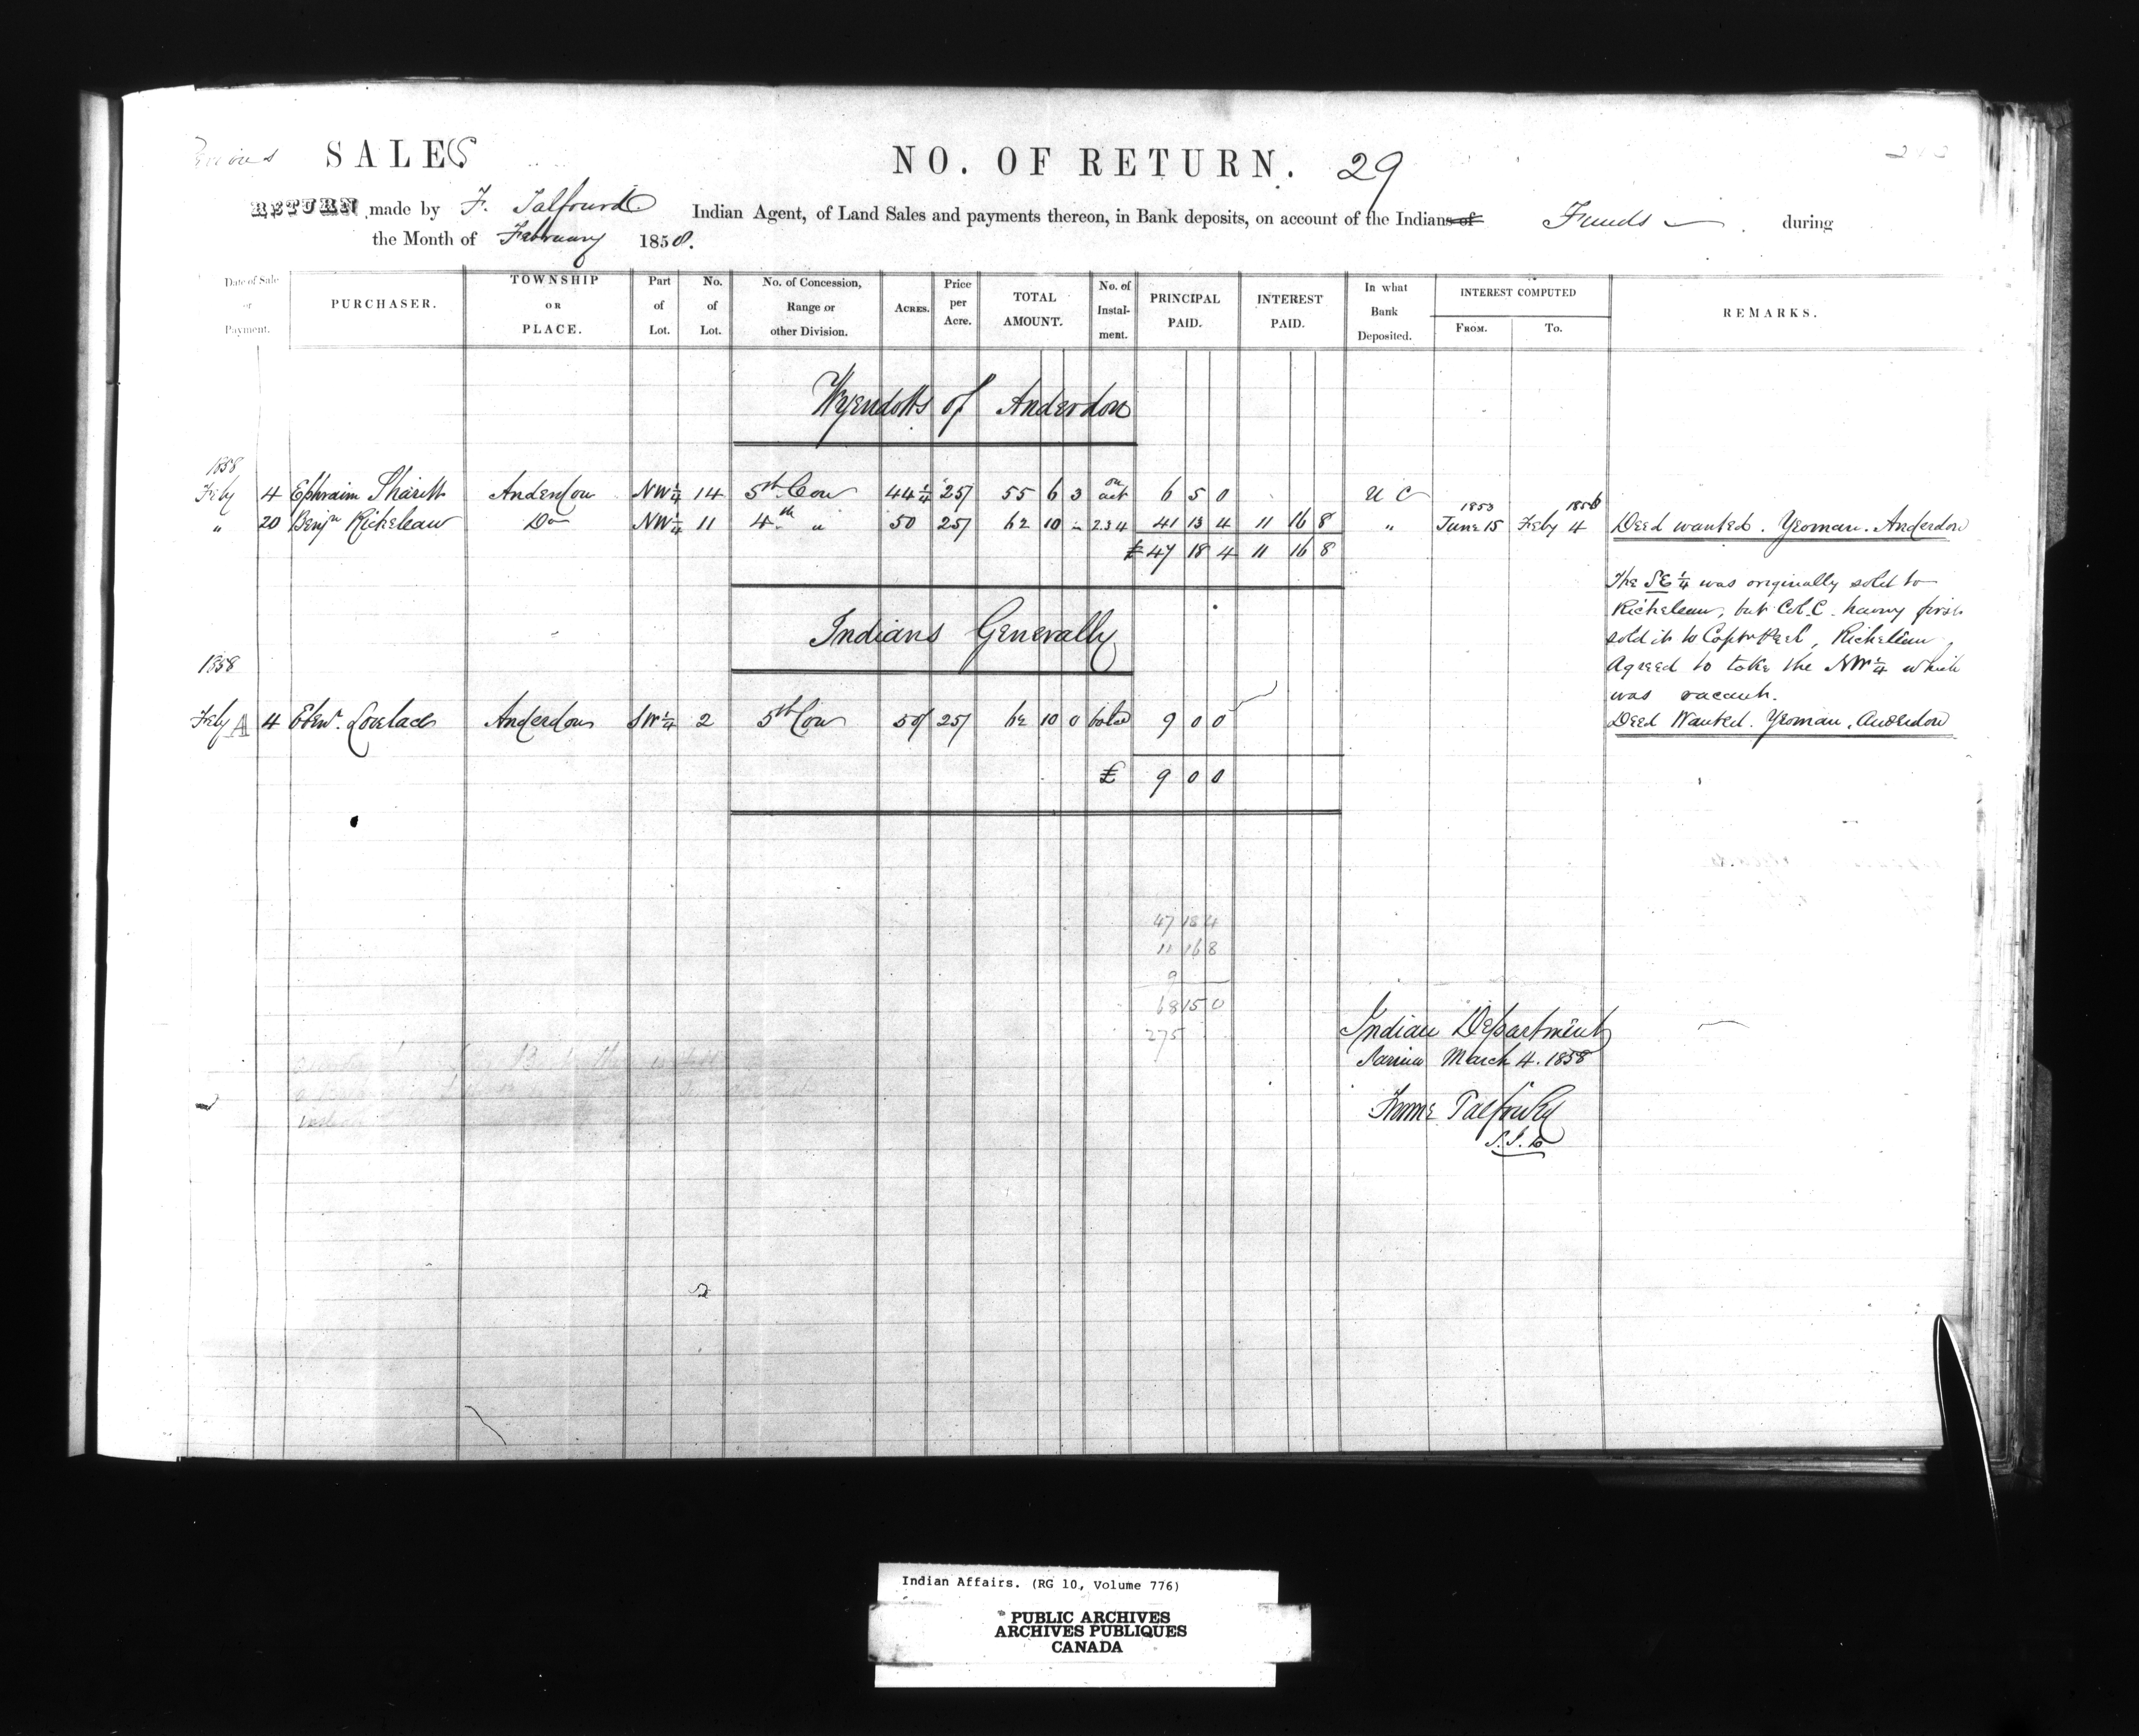 SALES
NO. OF RETURN. 29
RETURN made by F. Talfourd Indian Agent, of Land Sales and payments thereon, in Bank deposits, on account of the Indians of Funds during
the Month of February 1858.
Date of Sale or Payment. PURCHASER. TOWNSHIP OR PLACE. Part of Lot. No. of Lot. No. of Concession, Range or other Division. ACRES. Price per Acre. TOTAL AMOUNT. No. of Instalment. PRINCIPAL PAID. INTEREST PAID. In what Bank Deposited. INTEREST COMPUTED FROM. TO. REMARKS.
Wyendotts of Anderdon
1858
Feby 4 Ephraim Anderdon NW 1/4 14 5th Con 44 1/4 25/ 55 6 3 on act 6 5 0 U C
" 20 Benjn Richeleau Do NW 1/4 11 4th " 50 25/ 62 10 - 2 3 4 41 13 4 11 16 8 " 1853 June 15 Feby 4 Deed wanted. Yeoman. Anderdon
£ 47 18 4 11 16 8
The SE 1/4 was originally sold to
Richeleau, but Col. C. having first
sold it to Richeleau
Agreed to take the NW 1/4 which
was vacant.
Indians Generally
1858
Feby A 4 Ebenr. Lovelace Anderdon SW 1/4 2 5th Con 50 25/ 62 10 0 9 0 0 Deed Wanted. Yeoman. Anderdon
£ 9 0 0
47 18 4
11 16 8
9
68 15 0
275
Indian Department
Sarnia March 4. 1858
Froome Talfourd
Indian Affairs. (RG 10, Volume 776)
PUBLIC ARCHIVES
ARCHIVES PUBLIQUES
CANADA